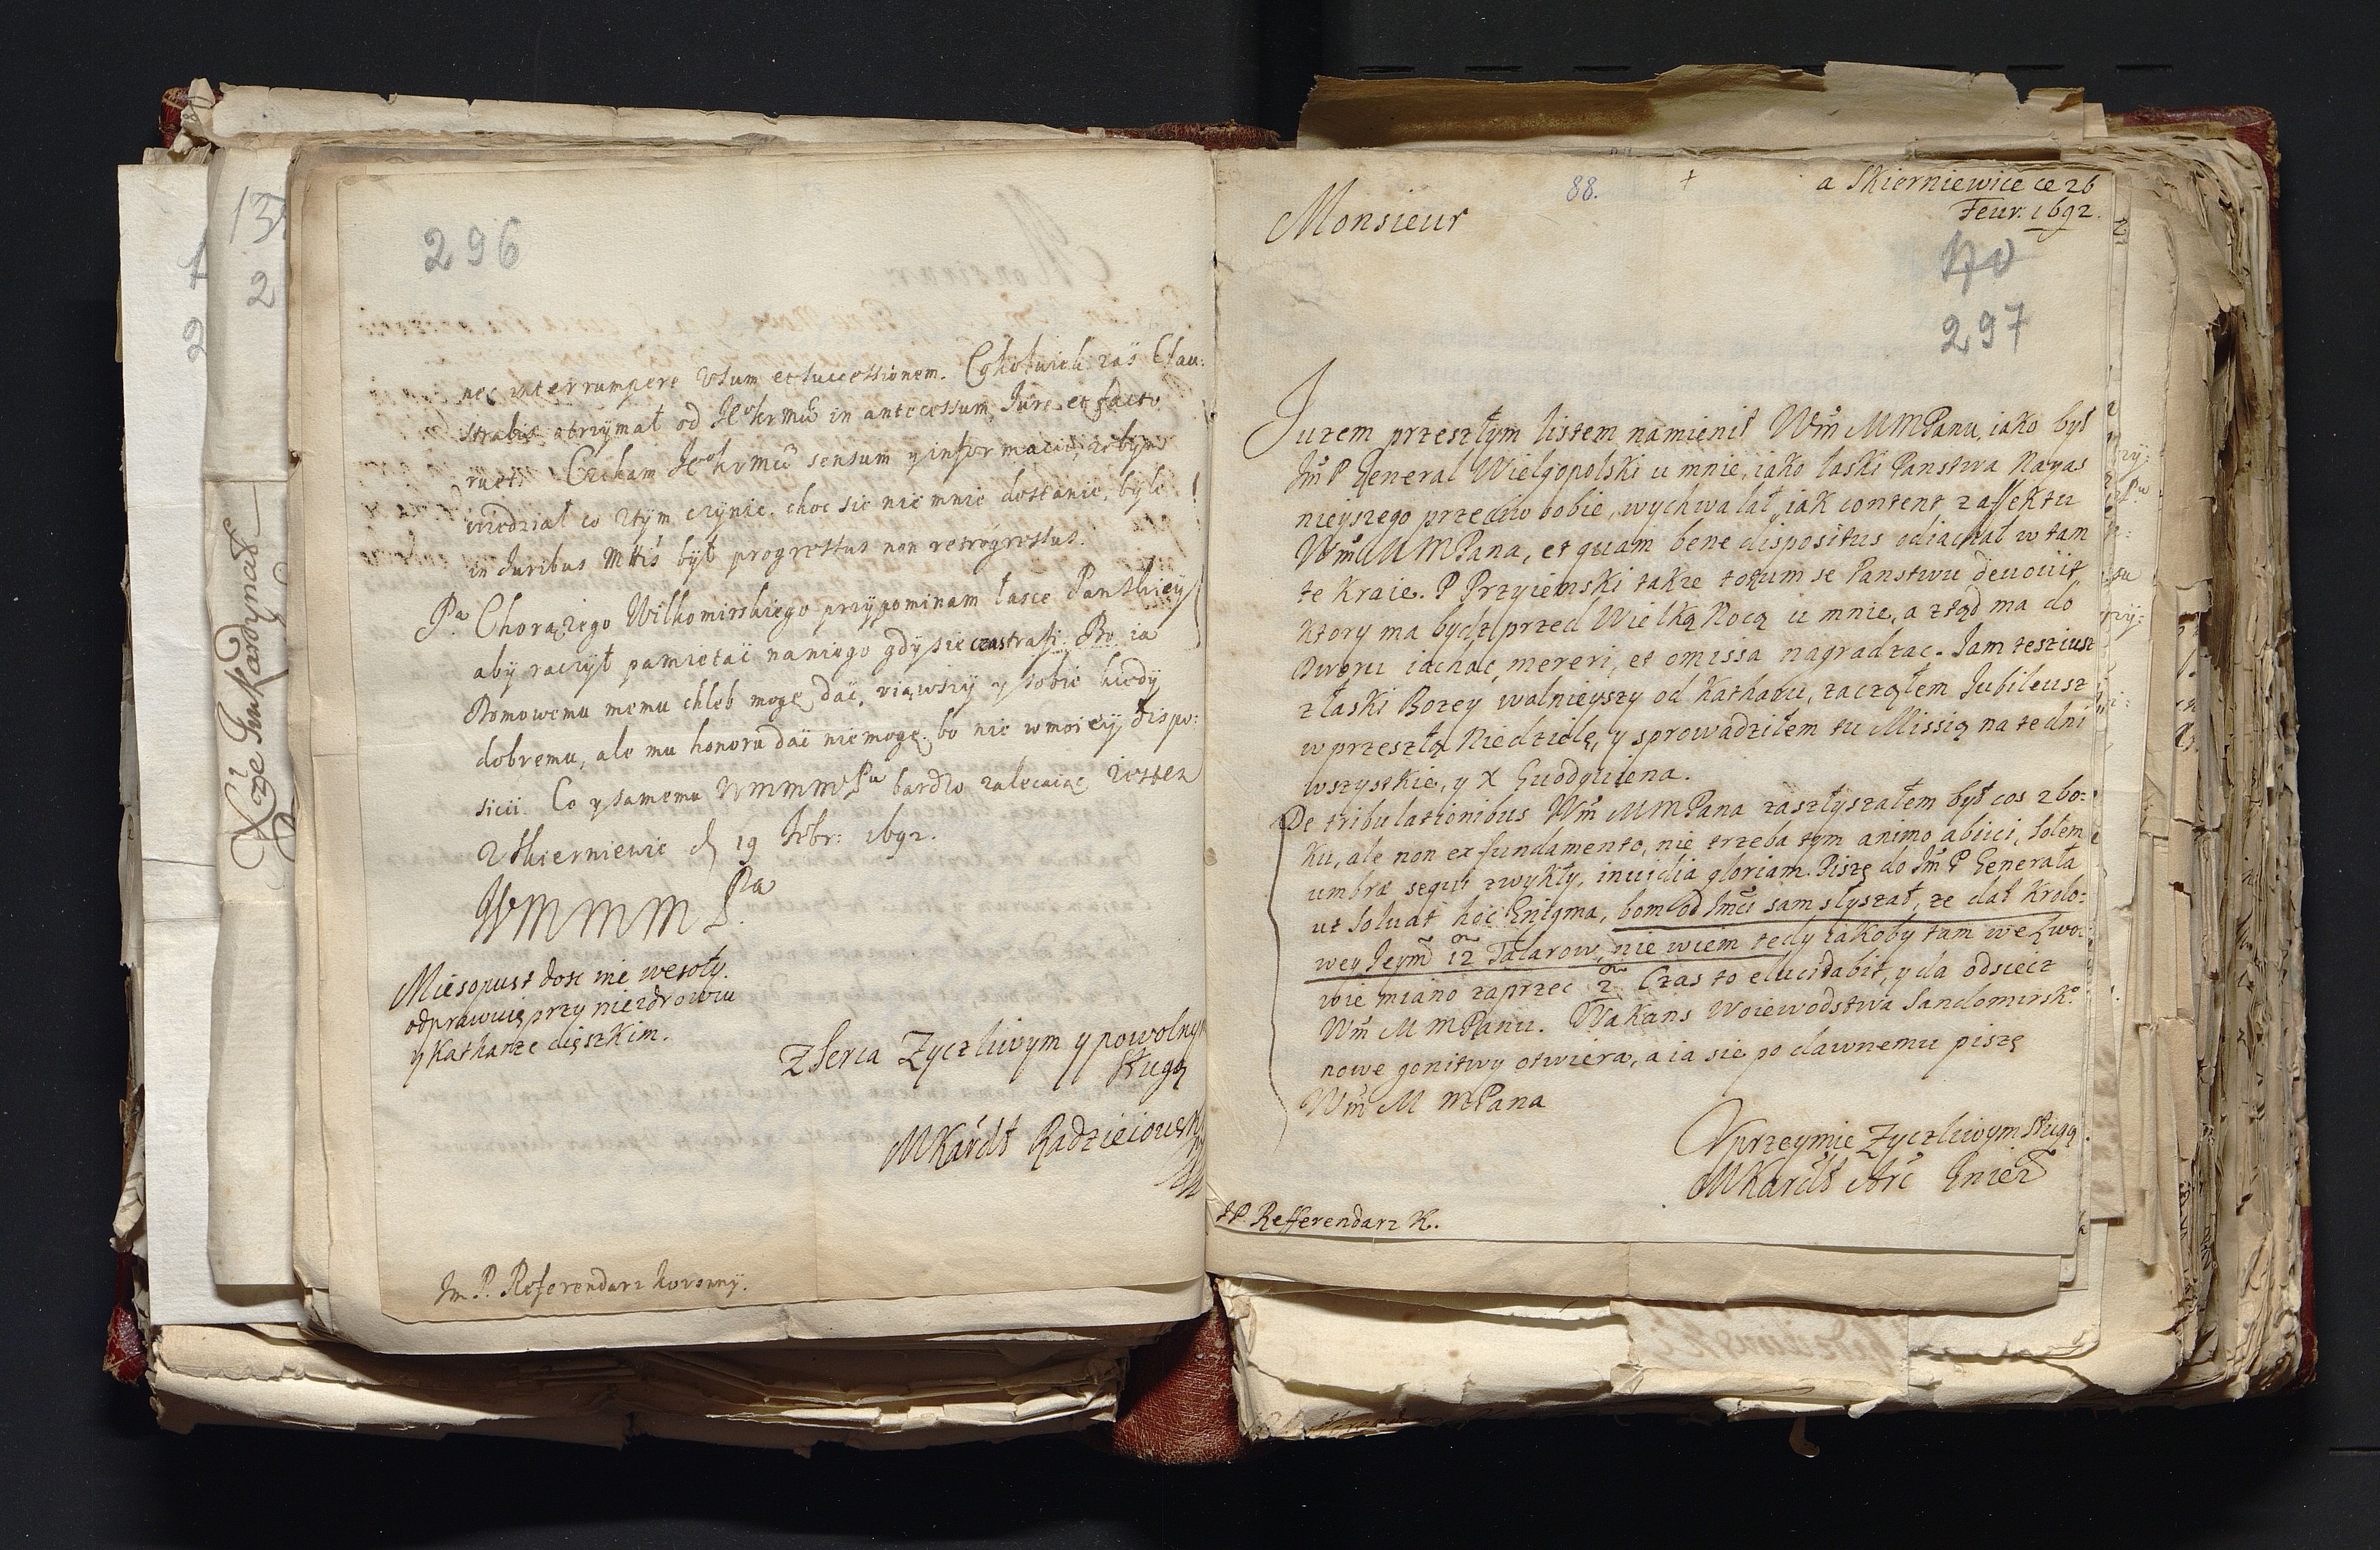 296
nec interrumpere Usum et successionem. Cokolwiek zaś Clau:
strabis otrzymał od JKrMci in antecessum, Jure et facto
ruet. Czekam JKrMci sensum y informaciei, zebym
wiedział co ztym czynic. choc sie nie mnie dostanie, byle
in Juribus Mttis był progressus non retrogressus.
Pa Chorążego Wilkomirskiego przypominam łasce Panskiey
aby raczył pamietać naniego gdy sie czas trafi. Bo ia
Domowemu memu chleb mogę dać, viąwszy y sobie kiedy
dobremu, ale mu honoru dać niemogę. bo nie w moiey dispo:
sicii. Co y samemu WMMMPu bardzo zalecaiąc iestem
z Skierniewic d 19 Febr: 1692.
WMMMPa
Miesopust dosc nie wesoły
odprawuię przy niezdrowiu
y Katharze cięszkim.
z Serca Zyczliwym y powolnym
Sługą
MKardł Radzieiowski
Im P. Referendarz Koronny.
Xże Im Kardynał
88.
a Skierniewice ce 26
Feur. 1692.
Monsieur
170
297
Juzem przeszłym listem namienił Wm MMPanu, iako był
Im P General Wielgopolski u mnie, iako łaski Panstwa Nayas
nieyszego przeciwo sobie, wychwalał, iak content z affektu
Wm MMPana, et quam bene dispositus odiachał w tam
te Kraie. P Przyiemski takze totum se Panstwu deuouit,
Ktory ma bydz przed Wielką Nocą u mnie, a ztąd ma do
Dworu iachac, mereri, et omissa nagradzac. Jam tesz iusz
z łaski Bozey wolnieyszy od Katharu, zacząłem Jubileusz
w przeszłą Niedzielę, y sprowadziłem tu Missią na te dni
wszystkie, y X Guodyniena.
De tribulationibus Wm MMPana zasłyszałem był cos z bo:
ku, ale non ex fundamento, nie trzeba tym animo abiici, Solem
umbræ sequi zwykły, inuidia gloriam. Piszę do Im P Generała
ut Soluat hoc Enigma, bom od Imci sam słyszał, ze dał Krolo:
wey Jeym 12 Talarow, nie wiem tedy iakoby tam we Lwo:
wie miano zaprzec 2. Czas to elucidabit, y da odsiecz
Wm M MPanu. Wakans Woiewodstwa Sandomirsko
nowe gonitwy otwiera, a ia sie po dawnemu piszę
Wm M MPana
Vprzeymie Zyczliwym sługą
MKardł Arc Gniez
JP Refferendarz K.